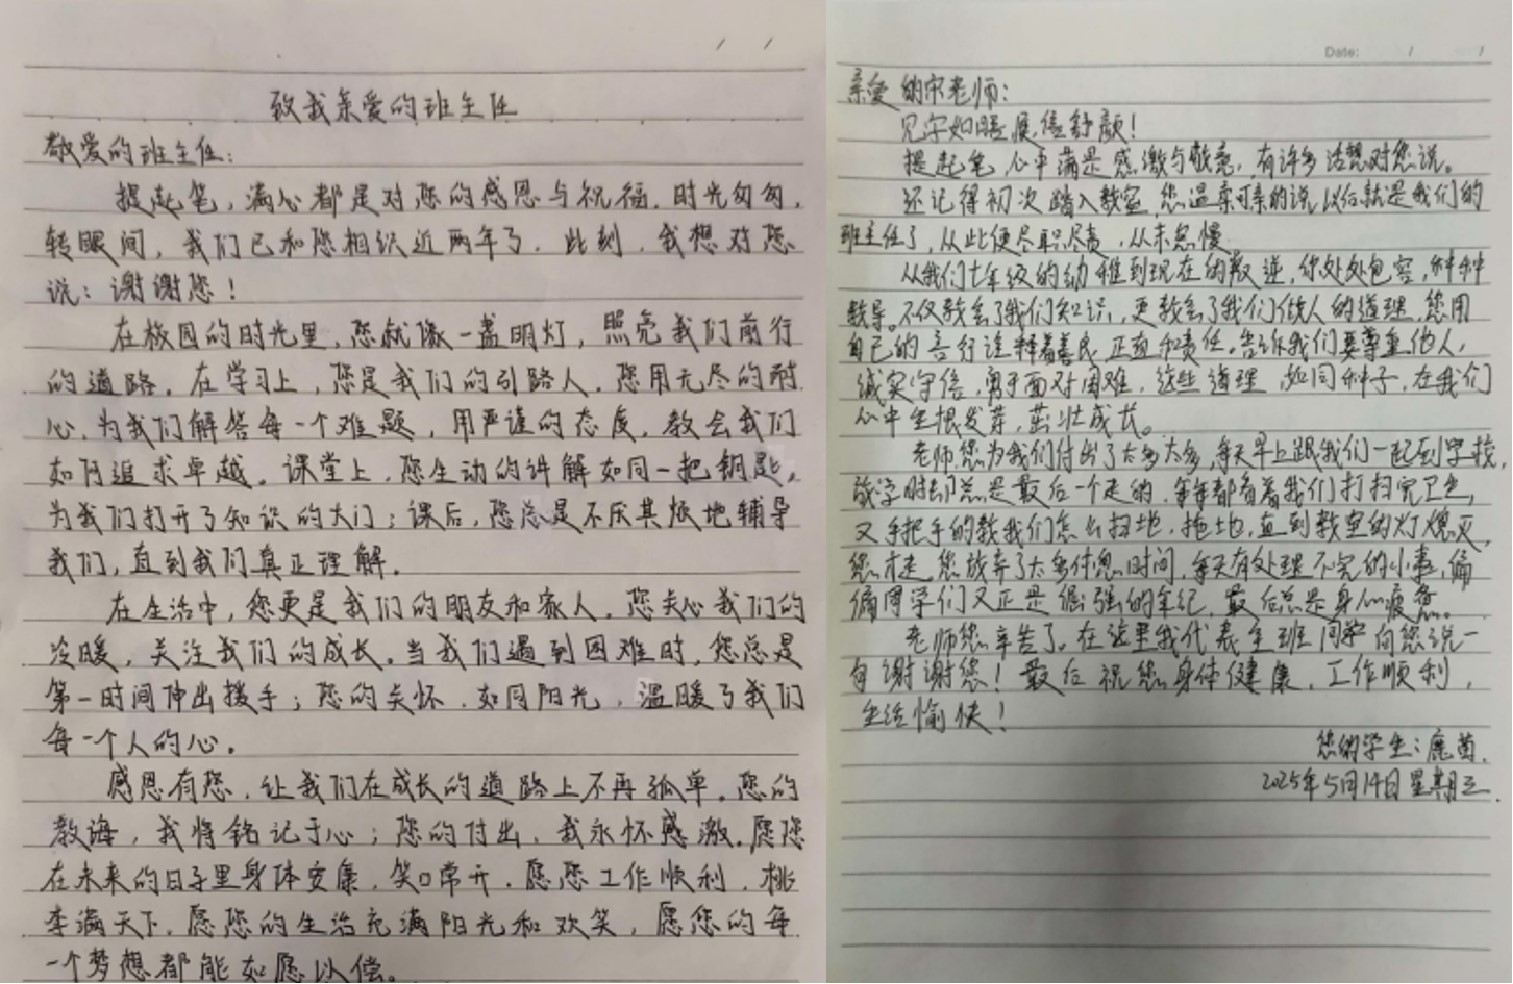 致我亲爱的班主任
敬爱的班主任:
提起笔,满心都是对您的感恩与祝福。时光匆匆,
转眼间,我们已和您相识近两年了。此刻,我想对您
说:谢谢您!
在校园的时光里,您就像一盏明灯,照亮我们前行
的道路。在学习上,您是我们的引路人。您用无尽的耐
心,为我们解答每一个难题,用严谨的态度,教会我们
如何追求卓越。课堂上,您生动的讲解如同一把钥匙,
为我们打开了知识的大门;课后,您总是不厌其烦地辅导
我们,直到我们真正理解。
在生活中,您更是我们的朋友和家人。您关心我们的
冷暖,关注我们的成长。当我们遇到困难时,您总是
第一时间伸出援手;您的关怀,如同阳光,温暖了我们
每一个人的心。
感恩有您,让我们在成长的道路上不再孤单。您的
教诲,我将铭记于心;您的付出,我永怀感激。愿您
在未来的日子里身体安康,笑口常开。愿您工作顺利,桃
李满天下。愿您的生活充满阳光和欢笑,愿您的每
一个梦想都能如愿以偿。
Date: / /
亲爱的宋老师:
见字如晤,展信舒颜!
提起笔,心中满是感激与敬意,有许多话想对您说。
还记得初次踏入教室,您温柔可亲的说,以后就是我们的
班主任了,从此便尽职尽责,从未怠慢。
从我们七年级的幼稚到现在的叛逆,你处处包容,种种
教导。不仅教会了我们知识,更教会了我们做人的道理,您用
自己的言行诠释着善良,正直和责任。告诉我们要尊重他人,
诚实守信,勇于面对困难,这些道理,如同种子,在我们
心中生根发芽,茁壮成长。
老师,您为我们付出了太多太多,每天早上跟我们一起到学校,
放学时却总是最后一个走的,每每都看着我们打扫完卫生,
又手把手的教我们怎么扫地,拖地,直到教室的灯熄灭,
您才走,您放弃了太多休息时间,每天有处理不完的小事,偏
偏同学们又正是倔强的年纪,最后总是身心疲惫。
老师您辛苦了。在这里我代表全班同学向您说一
句谢谢您!最后祝您身体健康,工作顺利,
生活愉快!
您的学生:鹿茵.
2025年5月14日星期三.